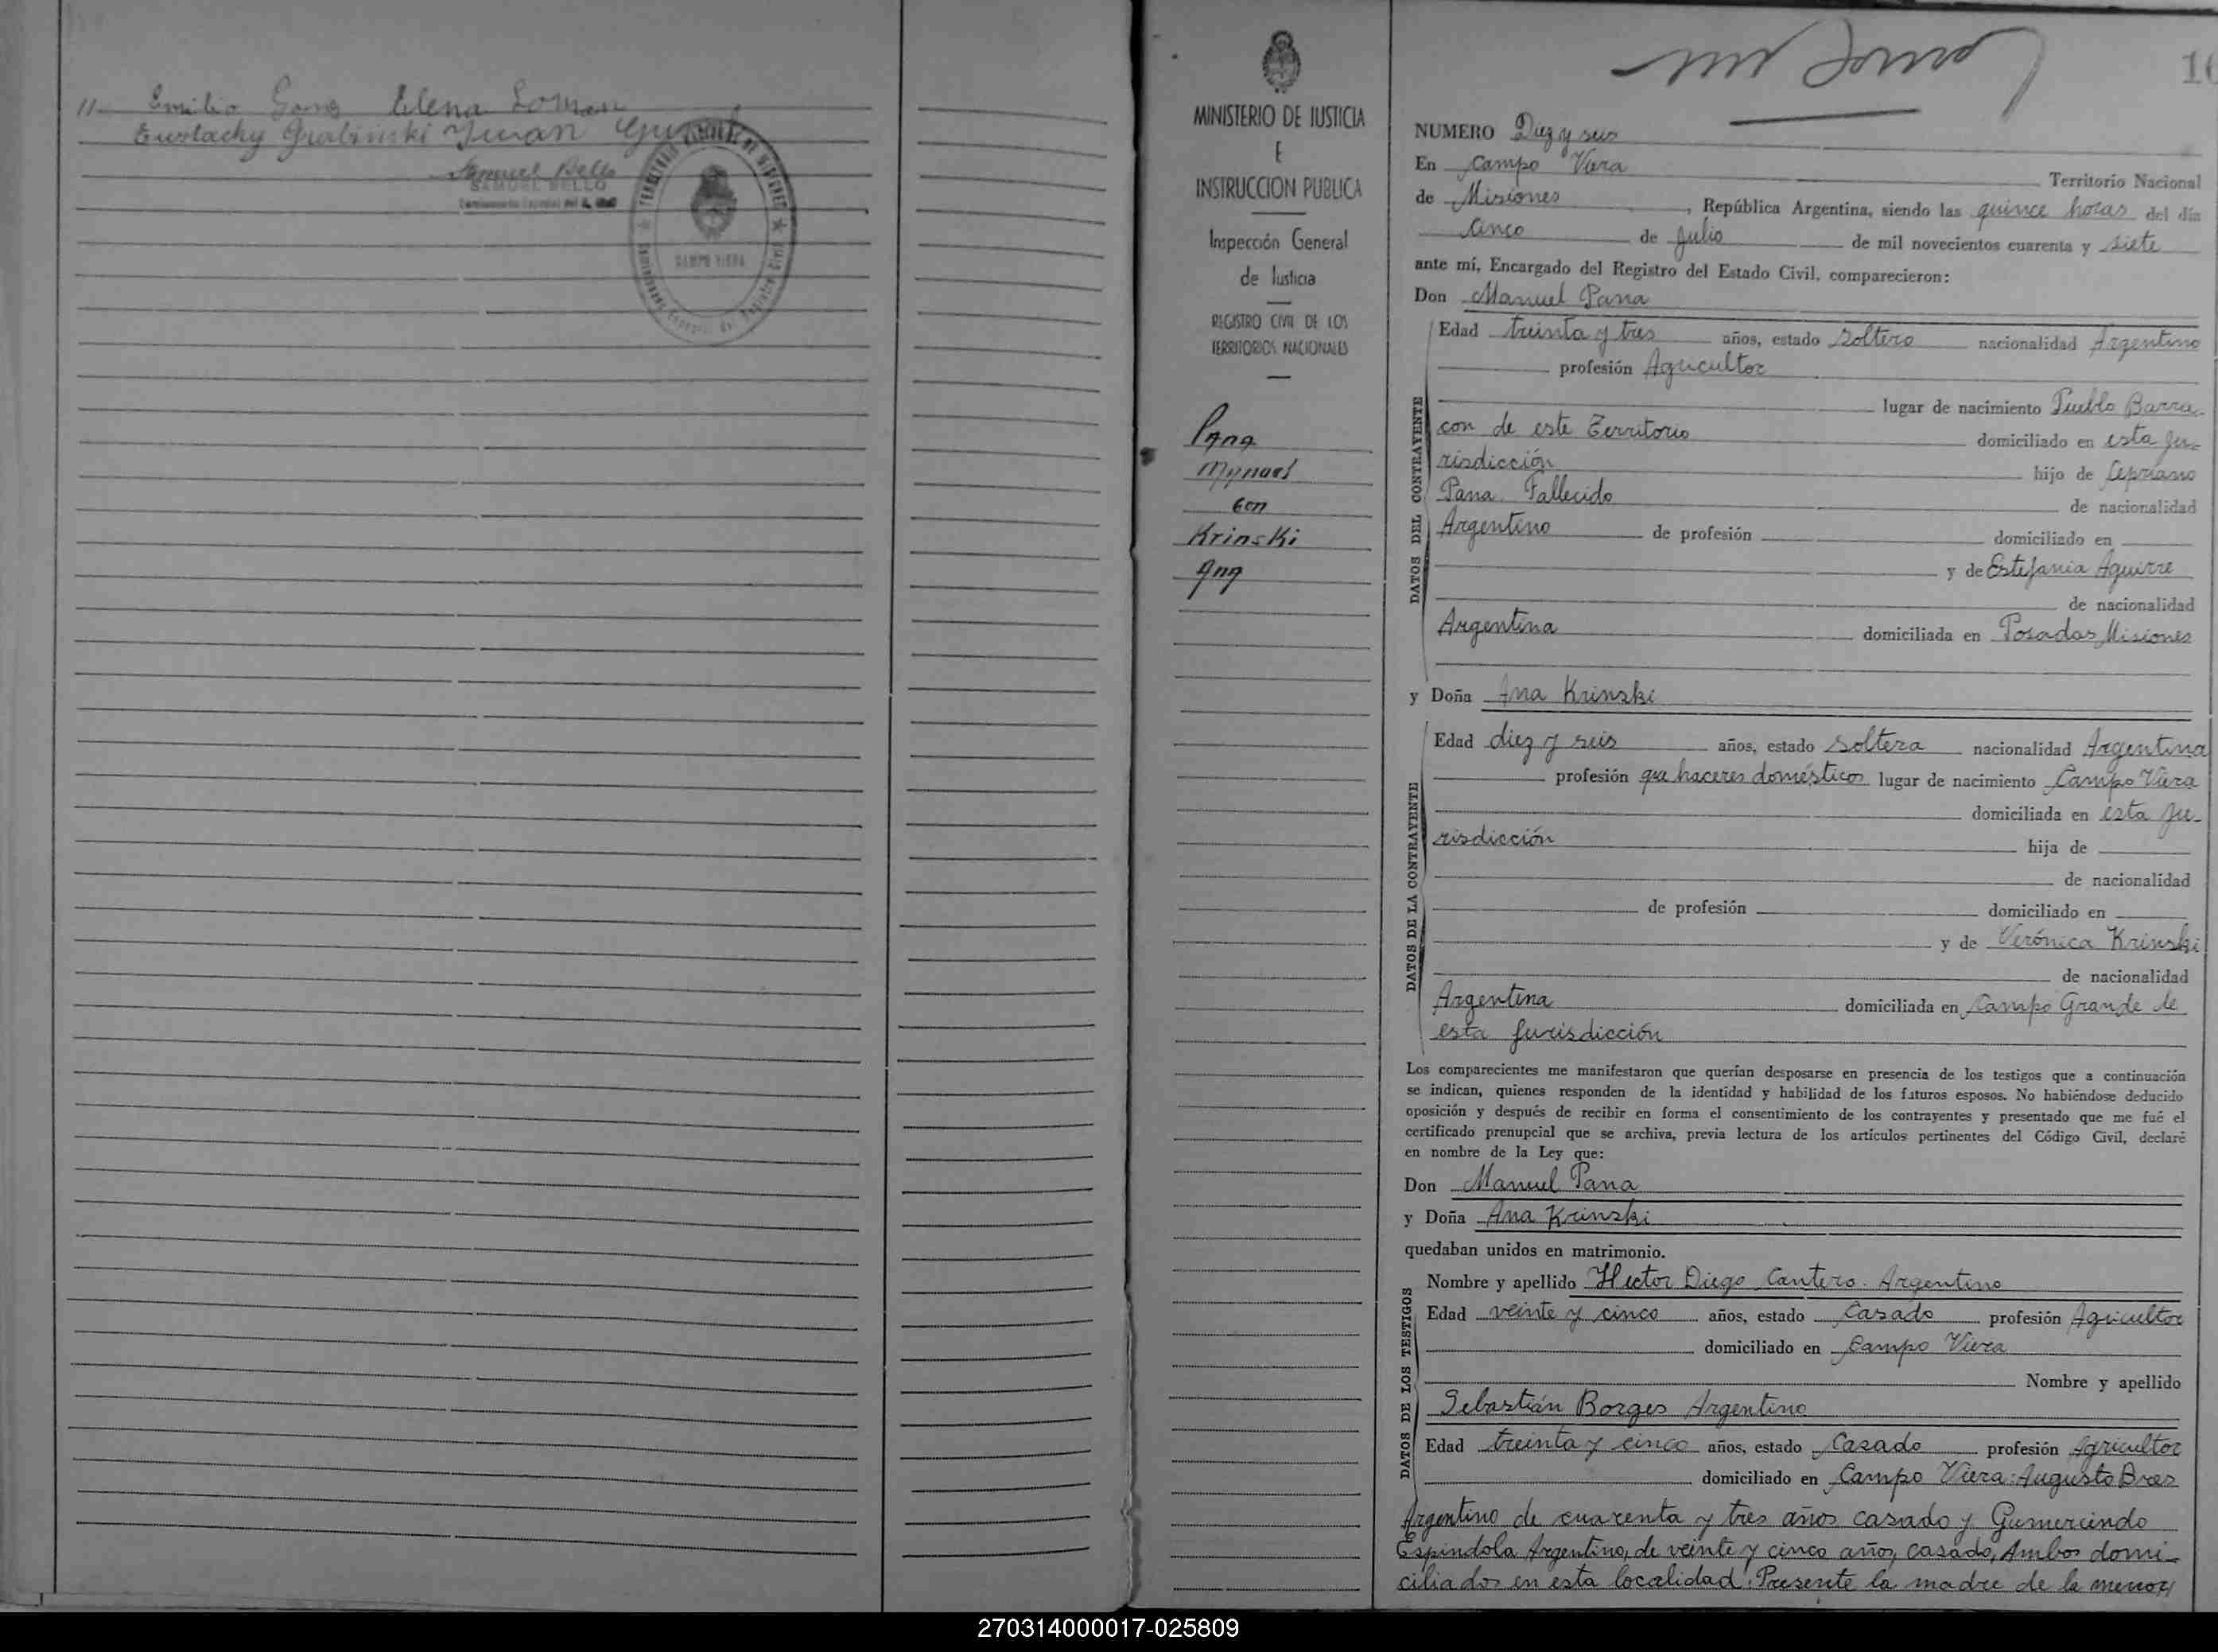 11 Emilio Elena Loman
Eustachy Grabinski Juan
Samuel Bello
SAMUEL BELLO
CAMPO VIERA
MINISTERIO DE JUSTICIA
E
INSTRUCCION PUBLICA
Inspección General
de Justicia
REGISTRO CIVIL DE LOS
TERRITORIOS NACIONALES
Pana
Manuel
con
Krinski
Ana
16
NUMERO Diez y seis
En Campo Viera Territorio Nacional
de Misiones, República Argentina, siendo las quince horas del día
cinco de Julio de mil novecientos cuarenta y siete
ante mí, Encargado del Registro del Estado Civil, comparecieron:
Don Manuel Pana
DATOS DEL CONTRAYENTE
Edad treinta y tres años, estado soltero nacionalidad Argentino
profesión Agricultor
lugar de nacimiento Pueblo Barra-
con de este Territorio domiciliado en esta Ju-
risdicción hijo de Cepriano
Pana Fallecido de nacionalidad
Argentino de profesión domiciliado en
y de Estefania Aguirre
de nacionalidad
Argentina domiciliada en Posadas Misiones
y Doña Ana Krinski
DATOS DE LA CONTRAYENTE
Edad diez y seis años, estado soltera nacionalidad Argentina
profesión que haceres domésticos lugar de nacimiento Campo Viera
domiciliada en esta Ju-
risdicción hija de
de nacionalidad
de profesión domiciliado en
y de Verónica Krinski
de nacionalidad
Argentina domiciliada en Campo Grande de
esta Jurisdicción
Los comparecientes me manifestaron que querían desposarse en presencia de los testigos que a continuación
se indican, quienes responden de la identidad y habilidad de los futuros esposos. No habiéndose deducido
oposición y después de recibir en forma el consentimiento de los contrayentes y presentado que me fué el
certificado prenupcial que se archiva, previa lectura de los artículos pertinentes del Código Civil, declaré
en nombre de la Ley que:
Don Manuel Pana
y Doña Ana Krinski
quedaban unidos en matrimonio.
DATOS DE LOS TESTIGOS
Nombre y apellido Hector Diego Cantero. Argentino
Edad veinte y cinco años, estado Casado profesión Agricultor
domiciliado en Campo Viera
Nombre y apellido
Sebastián Borges Argentino
Edad treinta y cinco años, estado Casado profesión Agricultor
domiciliado en Campo Viera: Augusto Bres
Argentino de cuarenta y tres años casado y Gumercindo
Espindola Argentino, de veinte y cinco año, casado, Ambos domi-
ciliados en esta localidad. Presente la madre de la menor
270314000017-025809